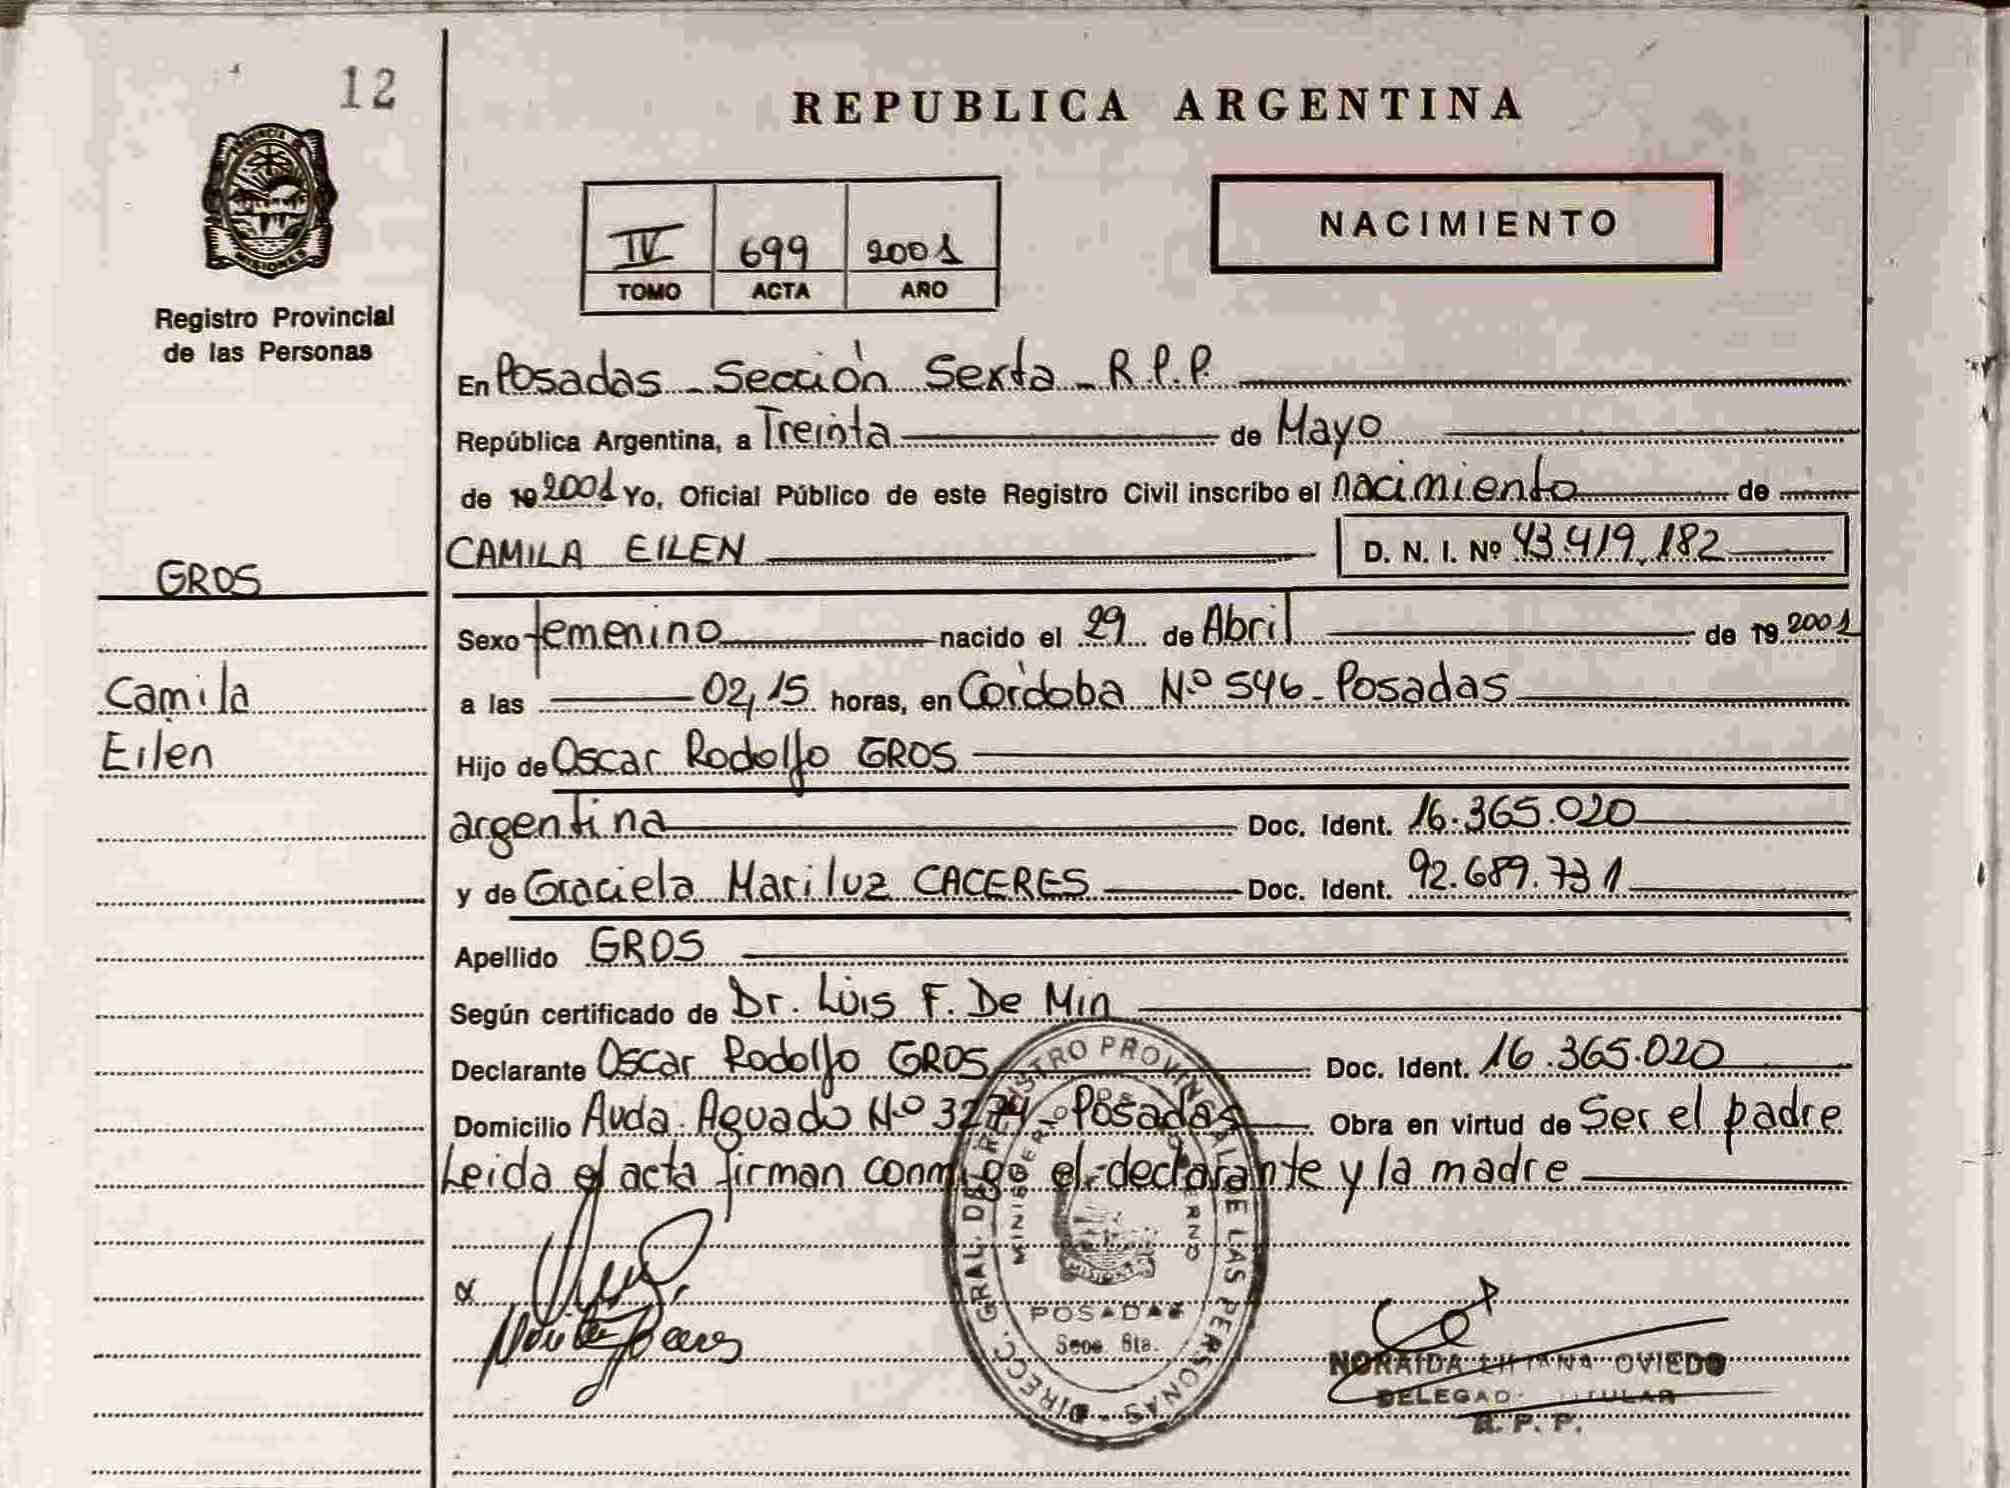 12
REPUBLICA ARGENTINA
PROVINCIA
MISIONES
NACIMIENTO
IV 699 2001
TOMO ACTA AÑO
Registro Provincial
de las Personas
En Posadas - Sección Sexta - R.P.P.
República Argentina, a Treinta de Mayo
de 19 2001 Yo, Oficial Público de este Registro Civil inscribo el nacimiento de
CAMILA EILEN D. N. I. Nº 43.419.182
GROS
Camila
Eilen
Sexo femenino nacido el 29 de Abril de 19 2001
a las 02,15 horas, en Córdoba Nº 546 - Posadas
Hijo de Oscar Rodolfo GROS
argentina Doc. Ident. 16.365.020
y de Graciela Mariluz CACERES Doc. Ident. 92.689.731
Apellido GROS
Según certificado de Dr. Luis F. De Min
Declarante Oscar Rodolfo GROS Doc. Ident. 16.365.020
Domicilio Avda. Aguado Nº 3274 - Posadas Obra en virtud de Ser el padre
Leida el acta firman conmigo el declarante y la madre
DIRECC. GRAL. DE REGISTRO PROVINCIAL DE LAS PERSONAS
MINISTERIO DE GOBIERNO
MISIONES
POSADAS
Secc. 6ta.
NORAIDA LILIANA OVIEDO
DELEGADO TITULAR
R. P. P.